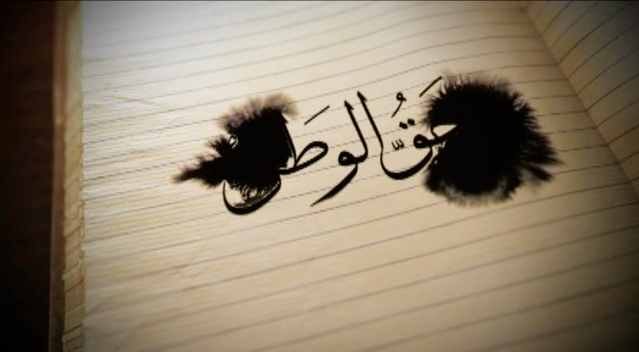 حَقُّ الوطَن